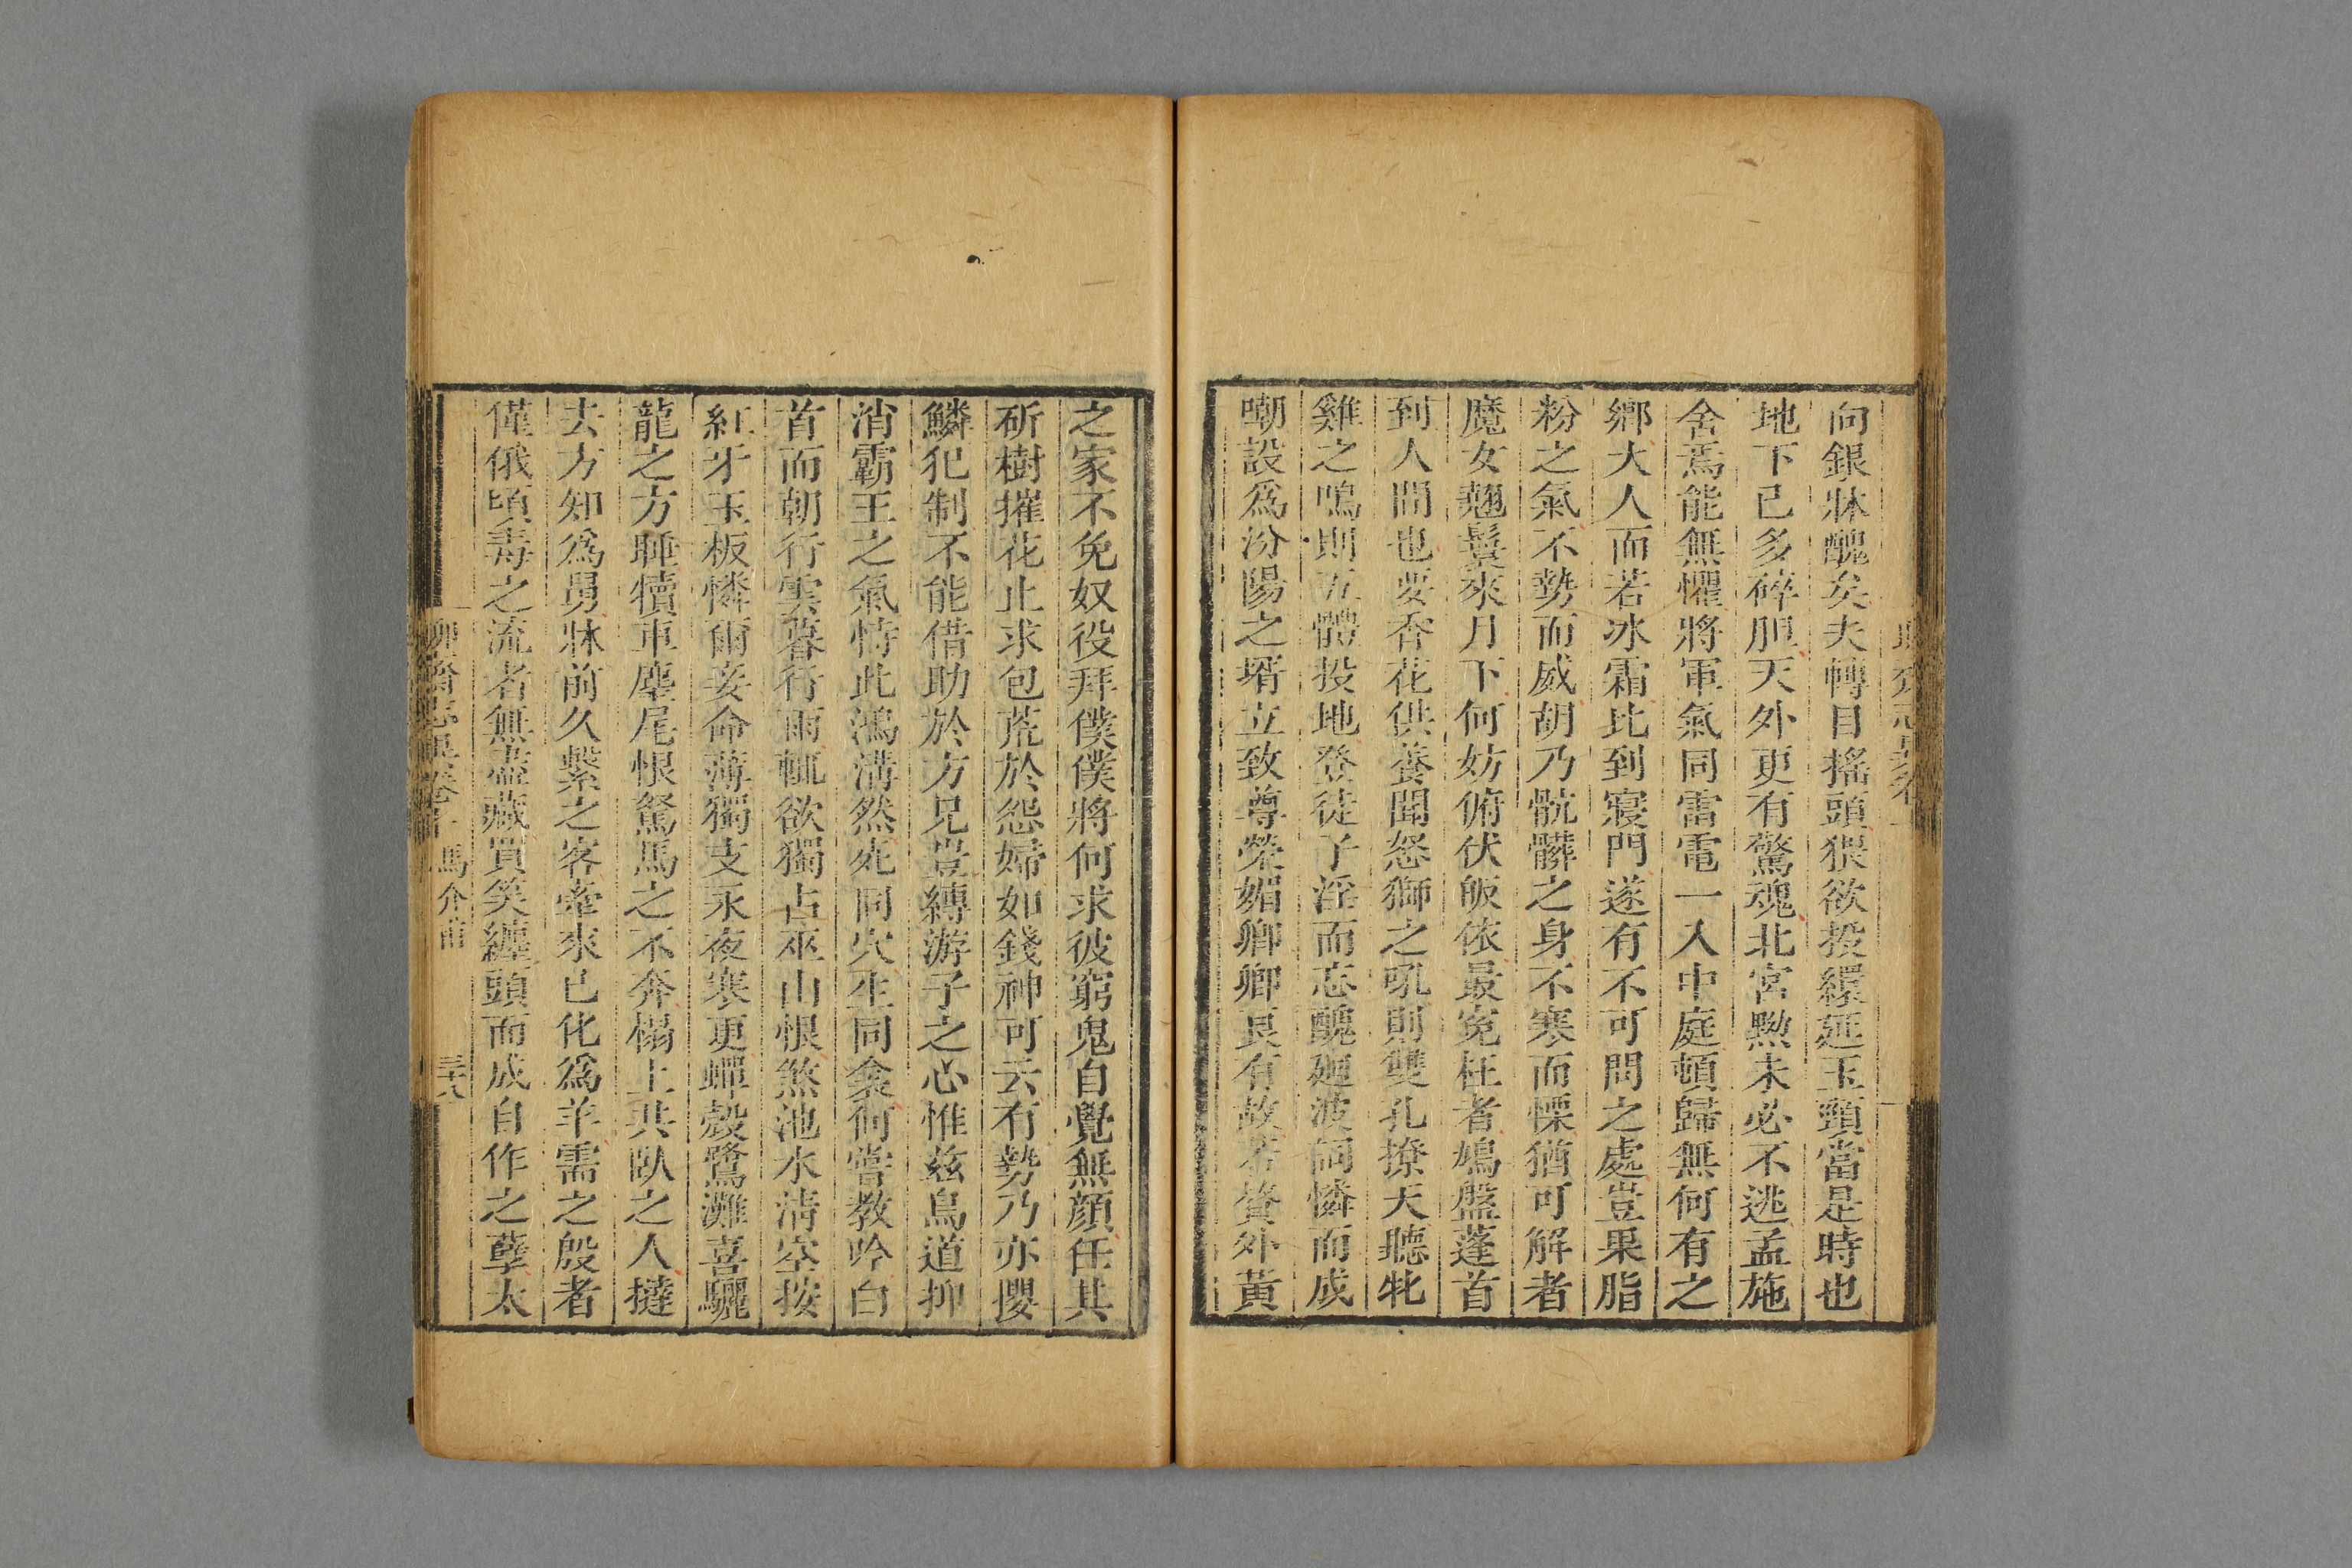 向銀牀醜矣夫轉目搖頭猥欲投繯延玉頸當是時也
地下已多碎胆天外更有驚魂北宮黝未必不逃孟施
舍焉能無懼將軍氣同雷電一入中庭頓歸無何有之
鄉大人而若冰霜比到寢門遂有不可問之處豈果脂
粉之氣不勢而威胡乃骯髒之身不寒而慄猶可解者
魔女翹鬟來月下何妨俯伏皈依最冤枉者鳩盤蓬首
到人間也要香花供養聞怒獅之吼則雙孔撩天聽牝
雞之鳴則五體投地登徒子淫而忘醜迴波詞憐而成
嘲設爲汾陽之壻立致尊榮媚卿卿良有故若贅外黃
之家不免奴役拜僕僕將何求彼窮鬼自覺無顏任其
斫樹摧花止求包荒於怨婦如錢神可云有勢乃亦嬰
鱗犯制不能借助於方兄豈縛游子之心惟茲鳥道抑
消霸王之氣恃此鴻溝然死同穴生同衾何嘗教吟白
首而朝行雲暮行雨輒欲獨占巫山恨煞池水清空按
紅牙玉板憐爾妾命薄獨支永夜寒更蟬殼鷺灘喜驪
龍之方睡犢車麈尾恨駑馬之不奔榻上共臥之人撻
去方知爲舅牀前久繫之客牽來已化爲羊需之殷者
僅俄頃毒之流者無盡藏買笑纏頭而成自作之孽太
聊齋志異卷十 馬介甫 三十八